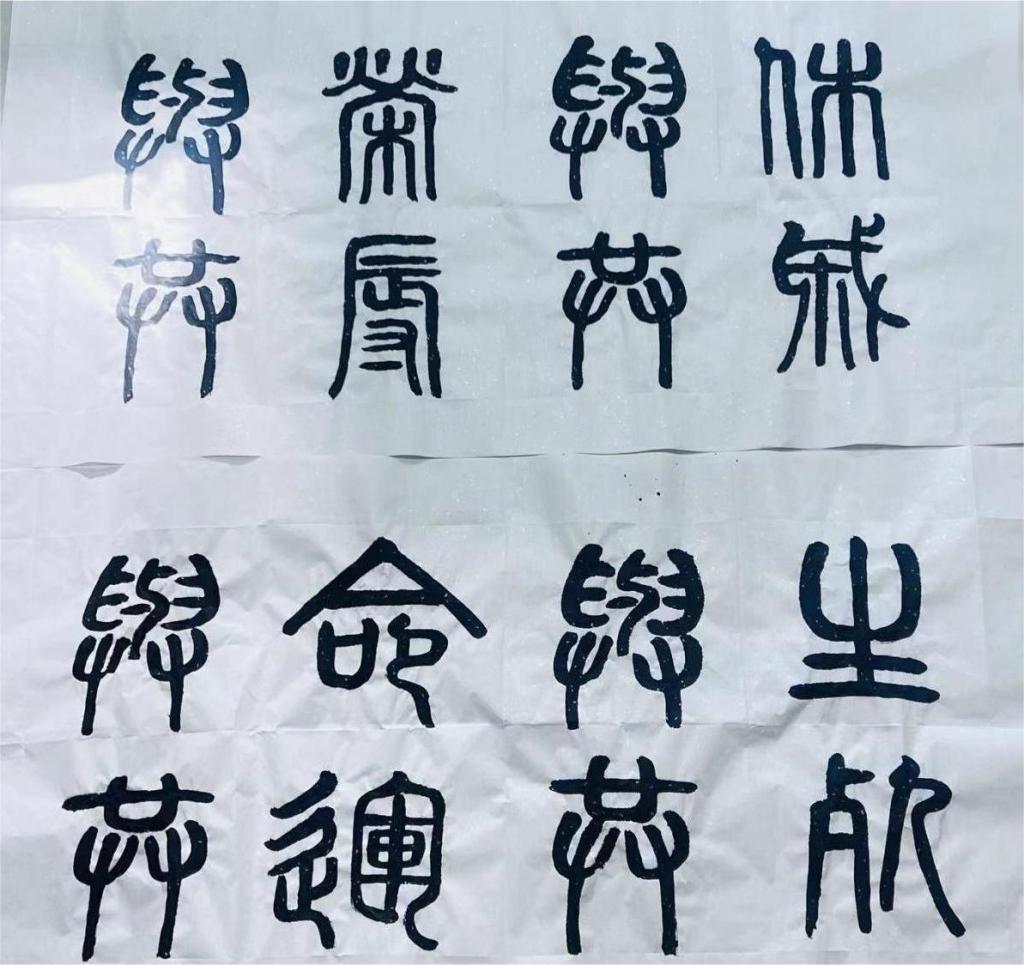 休戚
與共
榮辱
與共
生死
與共
命運
與共